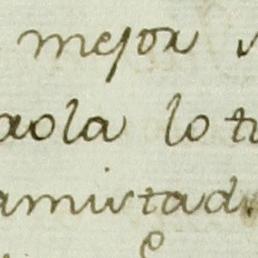 mejor
aola lo tu
amistad.